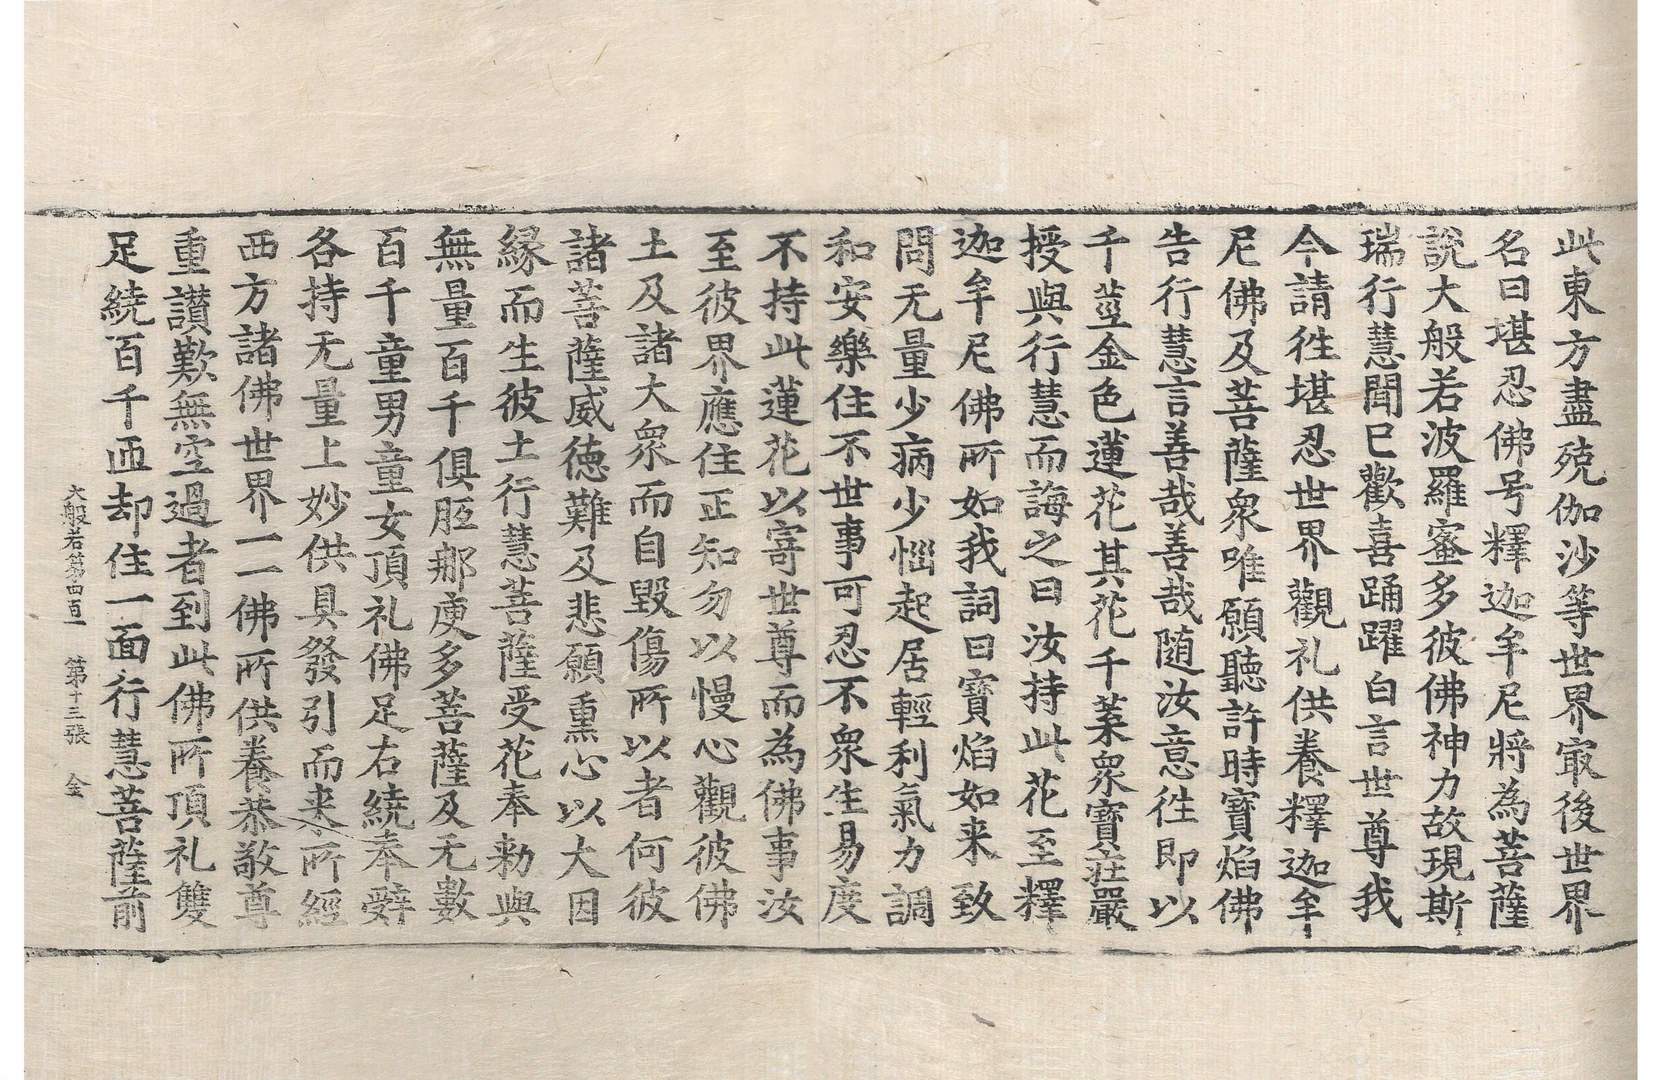 此東方盡殑伽沙等世界㝡後世界
名曰堪忍佛号釋迦牟尼將為菩薩
說大般若波羅蜜多彼佛神力故現斯
瑞行慧聞已歡喜踊躍白言世尊我
今請往堪忍世界觀礼供養釋迦牟
尼佛及菩薩衆唯願聽許時寶焰佛
告行慧言善哉善哉随汝意往即以
千莖金色蓮花其花千葉衆寶莊嚴
授與行慧而誨之曰汝持此花至釋
迦牟尼佛所如我詞曰寶焰如来致
問无量少病少惱起居輕利氣力調
和安樂住不世事可忍不衆生易度
不持此蓮花以寄世尊而為佛事汝
至彼界應住正知勿以慢心觀彼佛
土及諸大衆而自毀傷所以者何彼
諸菩薩威徳難及悲願熏心以大因
縁而生彼土行慧菩薩受花奉勑與
無量百千俱胝那庾多菩薩及无數
百千童男童女頂礼佛足右繞奉辤
各持无量上妙供具發引而来所經
西方諸佛世界一一佛所供養恭敬尊
重讃歎無空過者到此佛所頂礼雙
足繞百千匝却住一面行慧菩薩前
大般若第四百一 第十三張 金